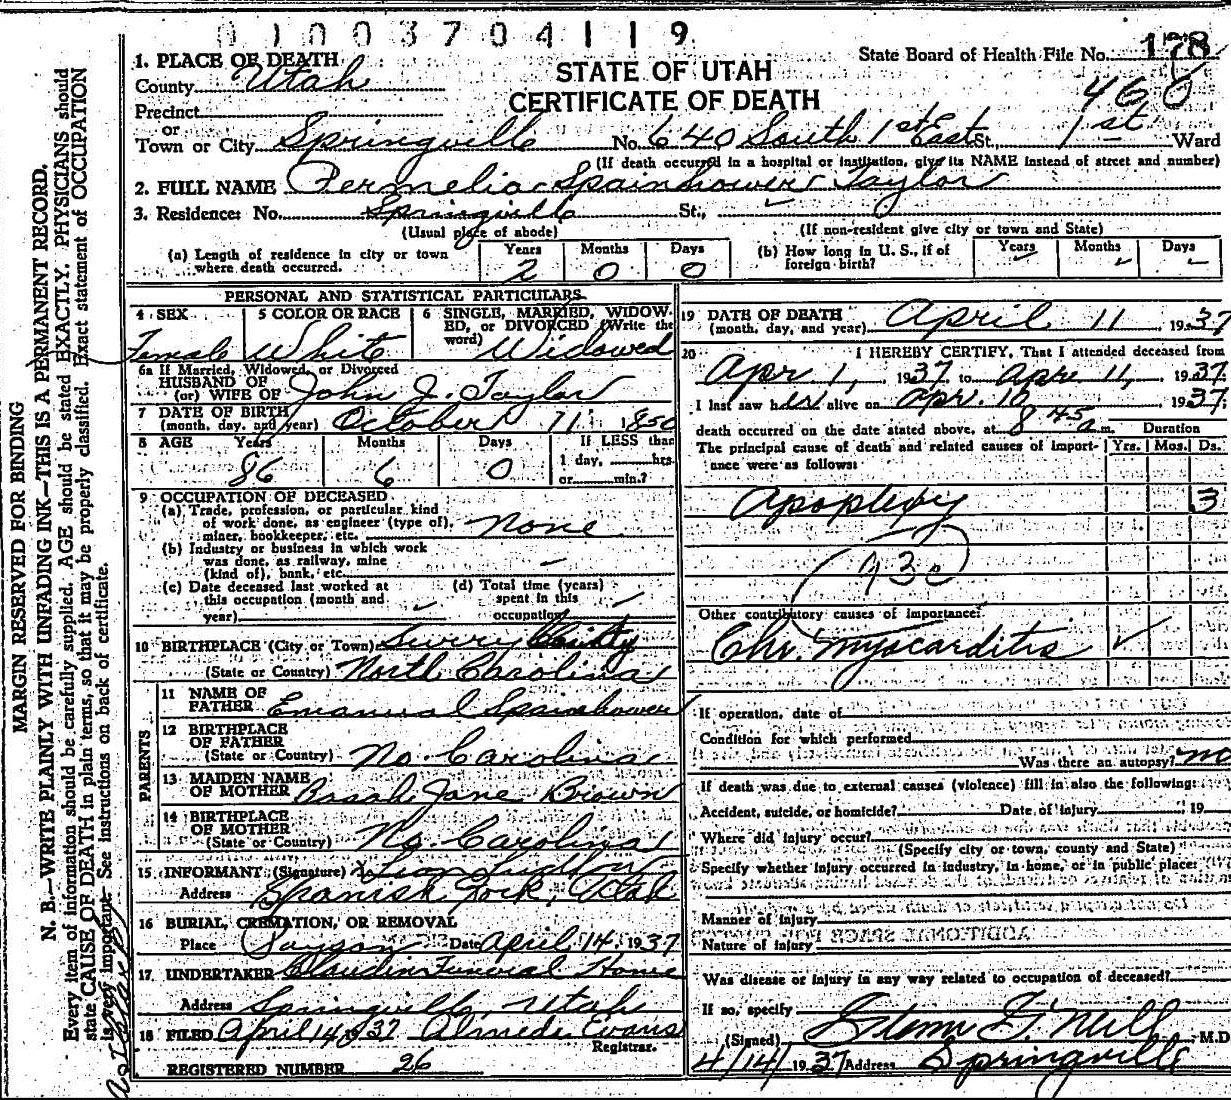 01003704119
State Board of Health File No. 178
STATE OF UTAH
CERTIFICATE OF DEATH
468
1. PLACE OF DEATH
County Utah
Precinct
or
Town or City Springville No. 640 South 1st East St., 1st Ward
(If death occurred in a hospital or institution, give its NAME instead of street and number)
2. FULL NAME Permelia Spainhower Taylor
3. Residence: No. Springville St.,
(Usual place of abode) (If non-resident give city or town and State)
(a) Length of residence in city or town where death occurred. Years 2 Months 0 Days 0
(b) How long in U. S., if of foreign birth? Years Months Days
PERSONAL AND STATISTICAL PARTICULARS
4 SEX Female
5 COLOR OR RACE White
6 SINGLE, MARRIED, WIDOWED, or DIVORCED (Write the word) Widowed
6a If Married, Widowed, or Divorced
HUSBAND OF
(or) WIFE OF John J. Taylor
7 DATE OF BIRTH
(month, day, and year) October 11 1850
8 AGE Years 86 Months 6 Days 0
If LESS than
1 day, hrs.
or min.?
9 OCCUPATION OF DECEASED
(a) Trade, profession, or particular kind
of work done, as engineer (type of),
miner, bookkeeper, etc. None
(b) Industry or business in which work
was done, as railway, mine
(kind of), bank, etc. –
(c) Date deceased last worked at
this occupation (month and
year)
(d) Total time (years)
spent in this
occupation
10 BIRTHPLACE (City or Town) Surry County
(State or Country) North Carolina
PARENTS
11 NAME OF
FATHER Emanual Spainhower
12 BIRTHPLACE
OF FATHER
(State or Country) No. Carolina
13 MAIDEN NAME
OF MOTHER Jane Brown
14 BIRTHPLACE
OF MOTHER
(State or Country) No. Carolina
15 INFORMANT (Signature) X
Address Spanish Fork, Utah
16 BURIAL, CREMATION, OR REMOVAL
Place Payson Date April 14, 1937
17 UNDERTAKER Claudin Funeral Home
Address Springville, Utah
18 FILED April 14, 1937 Almeda Evans
Registrar.
REGISTERED NUMBER 26
19 DATE OF DEATH
(month, day, and year) April 11 1937
20 I HEREBY CERTIFY, That I attended deceased from
Apr 1, 1937 to Apr. 11, 1937
I last saw her alive on Apr. 10 1937
death occurred on the date stated above, at 8 45 a m. Duration
The principal cause of death and related causes of importance were as follows: Yrs. Mos. Ds.
Apoplexy 3
93c
Other contributory causes of importance:
Chr. myocarditis ✓
If operation, date of
Condition for which performed
Was there an autopsy? no
If death was due to external causes (violence) fill in also the following:
Accident, suicide, or homicide? Date of injury 19
Where did injury occur?
(Specify city or town, county and State)
Specify whether injury occurred in industry, in home, or in public place:
Manner of injury
Nature of injury
Was disease or injury in any way related to occupation of deceased?
If so, specify
(Signed) M.D
4/14/1937 Address Springville
MARGIN RESERVED FOR BINDING
N. B.—WRITE PLAINLY WITH UNFADING INK—THIS IS A PERMANENT RECORD.
Every item of information should be carefully supplied. AGE should be stated EXACTLY. PHYSICIANS should
state CAUSE OF DEATH in plain terms, so that it may be properly classified. Exact statement of OCCUPATION
is very important. See instructions on back of certificate.